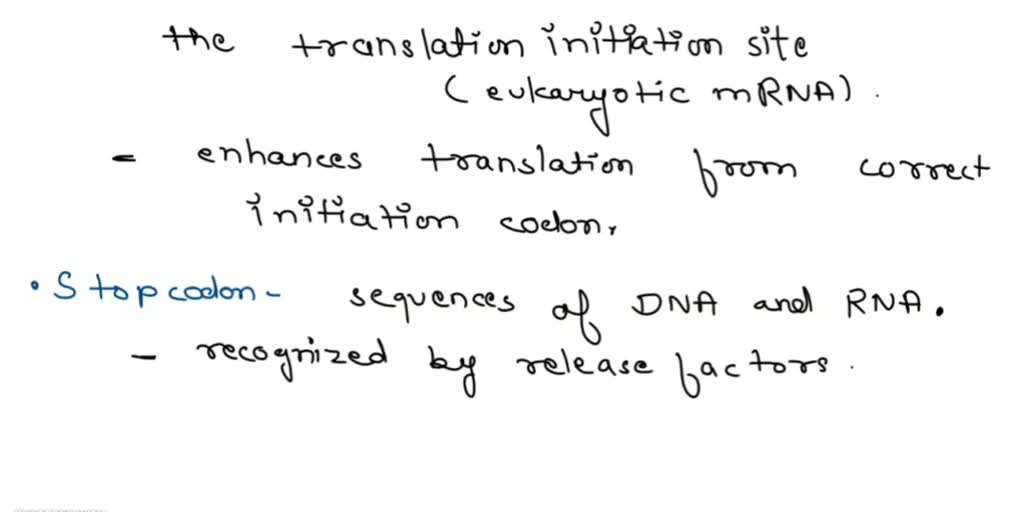 the translation initiation site
(eukaryotic mRNA).
- enhances translation from correct
initiation codon,
• Stop codon - sequences of DNA and RNA.
- recognized by release factors.